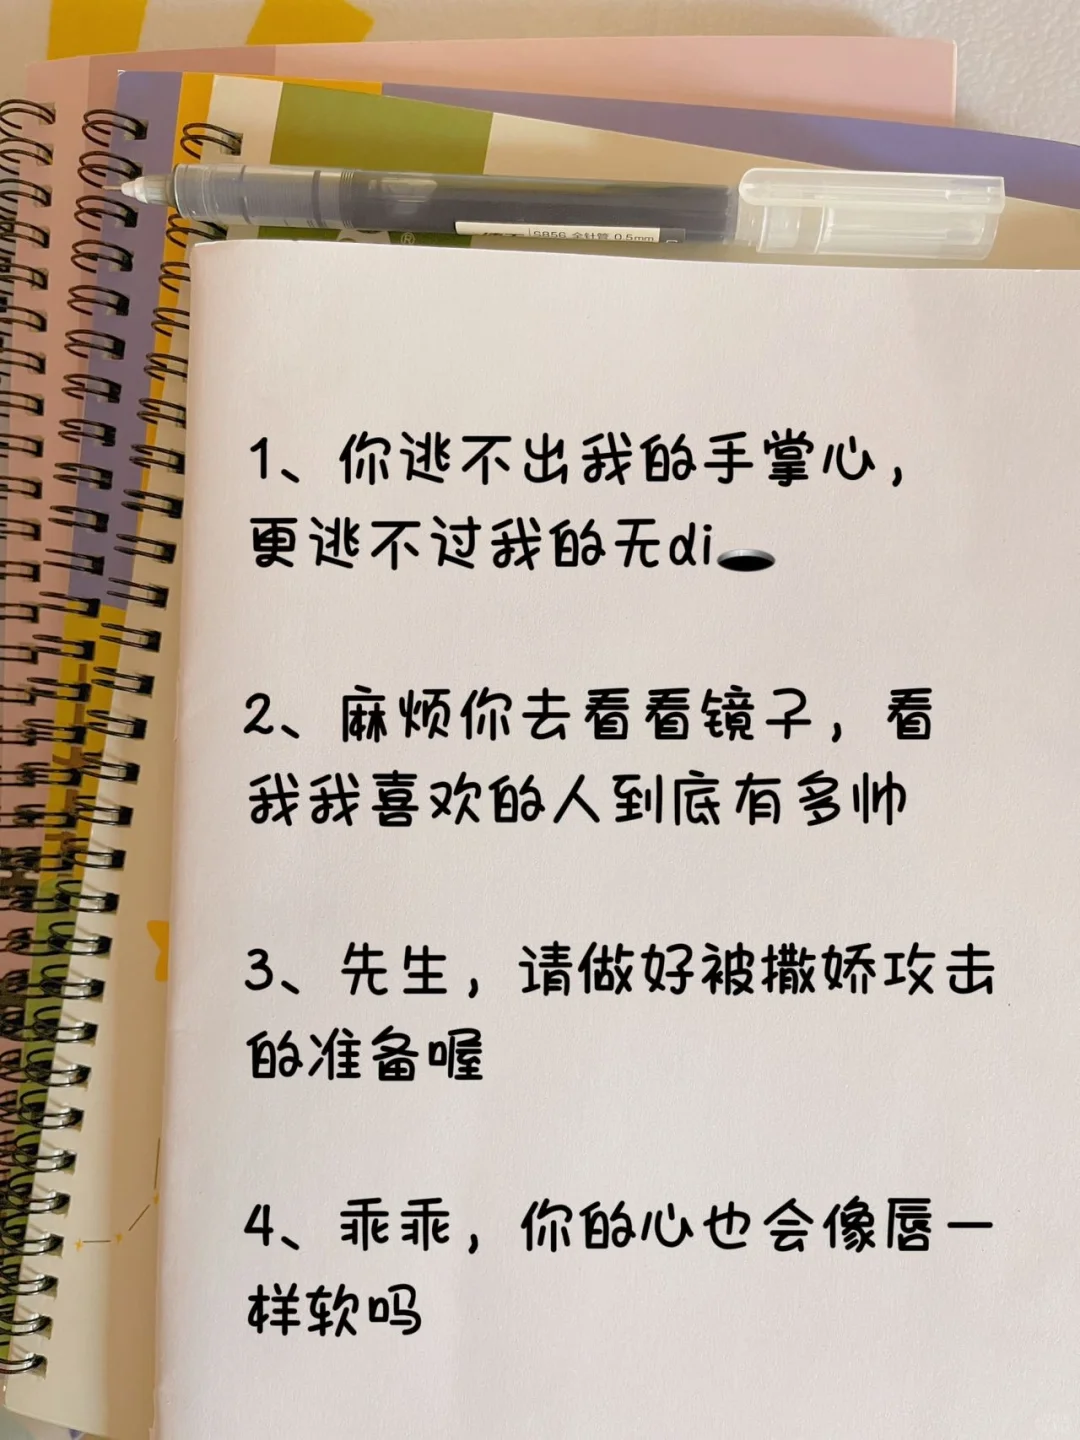 S856 全针管 0.5mm
1、你逃不出我的手掌心，
更逃不过我的无di🕳️
2、麻烦你去看看镜子，看
我我喜欢的人到底有多帅
3、先生，请做好被撒娇攻击
的准备喔
4、乖乖，你的心也会像唇一
样软吗